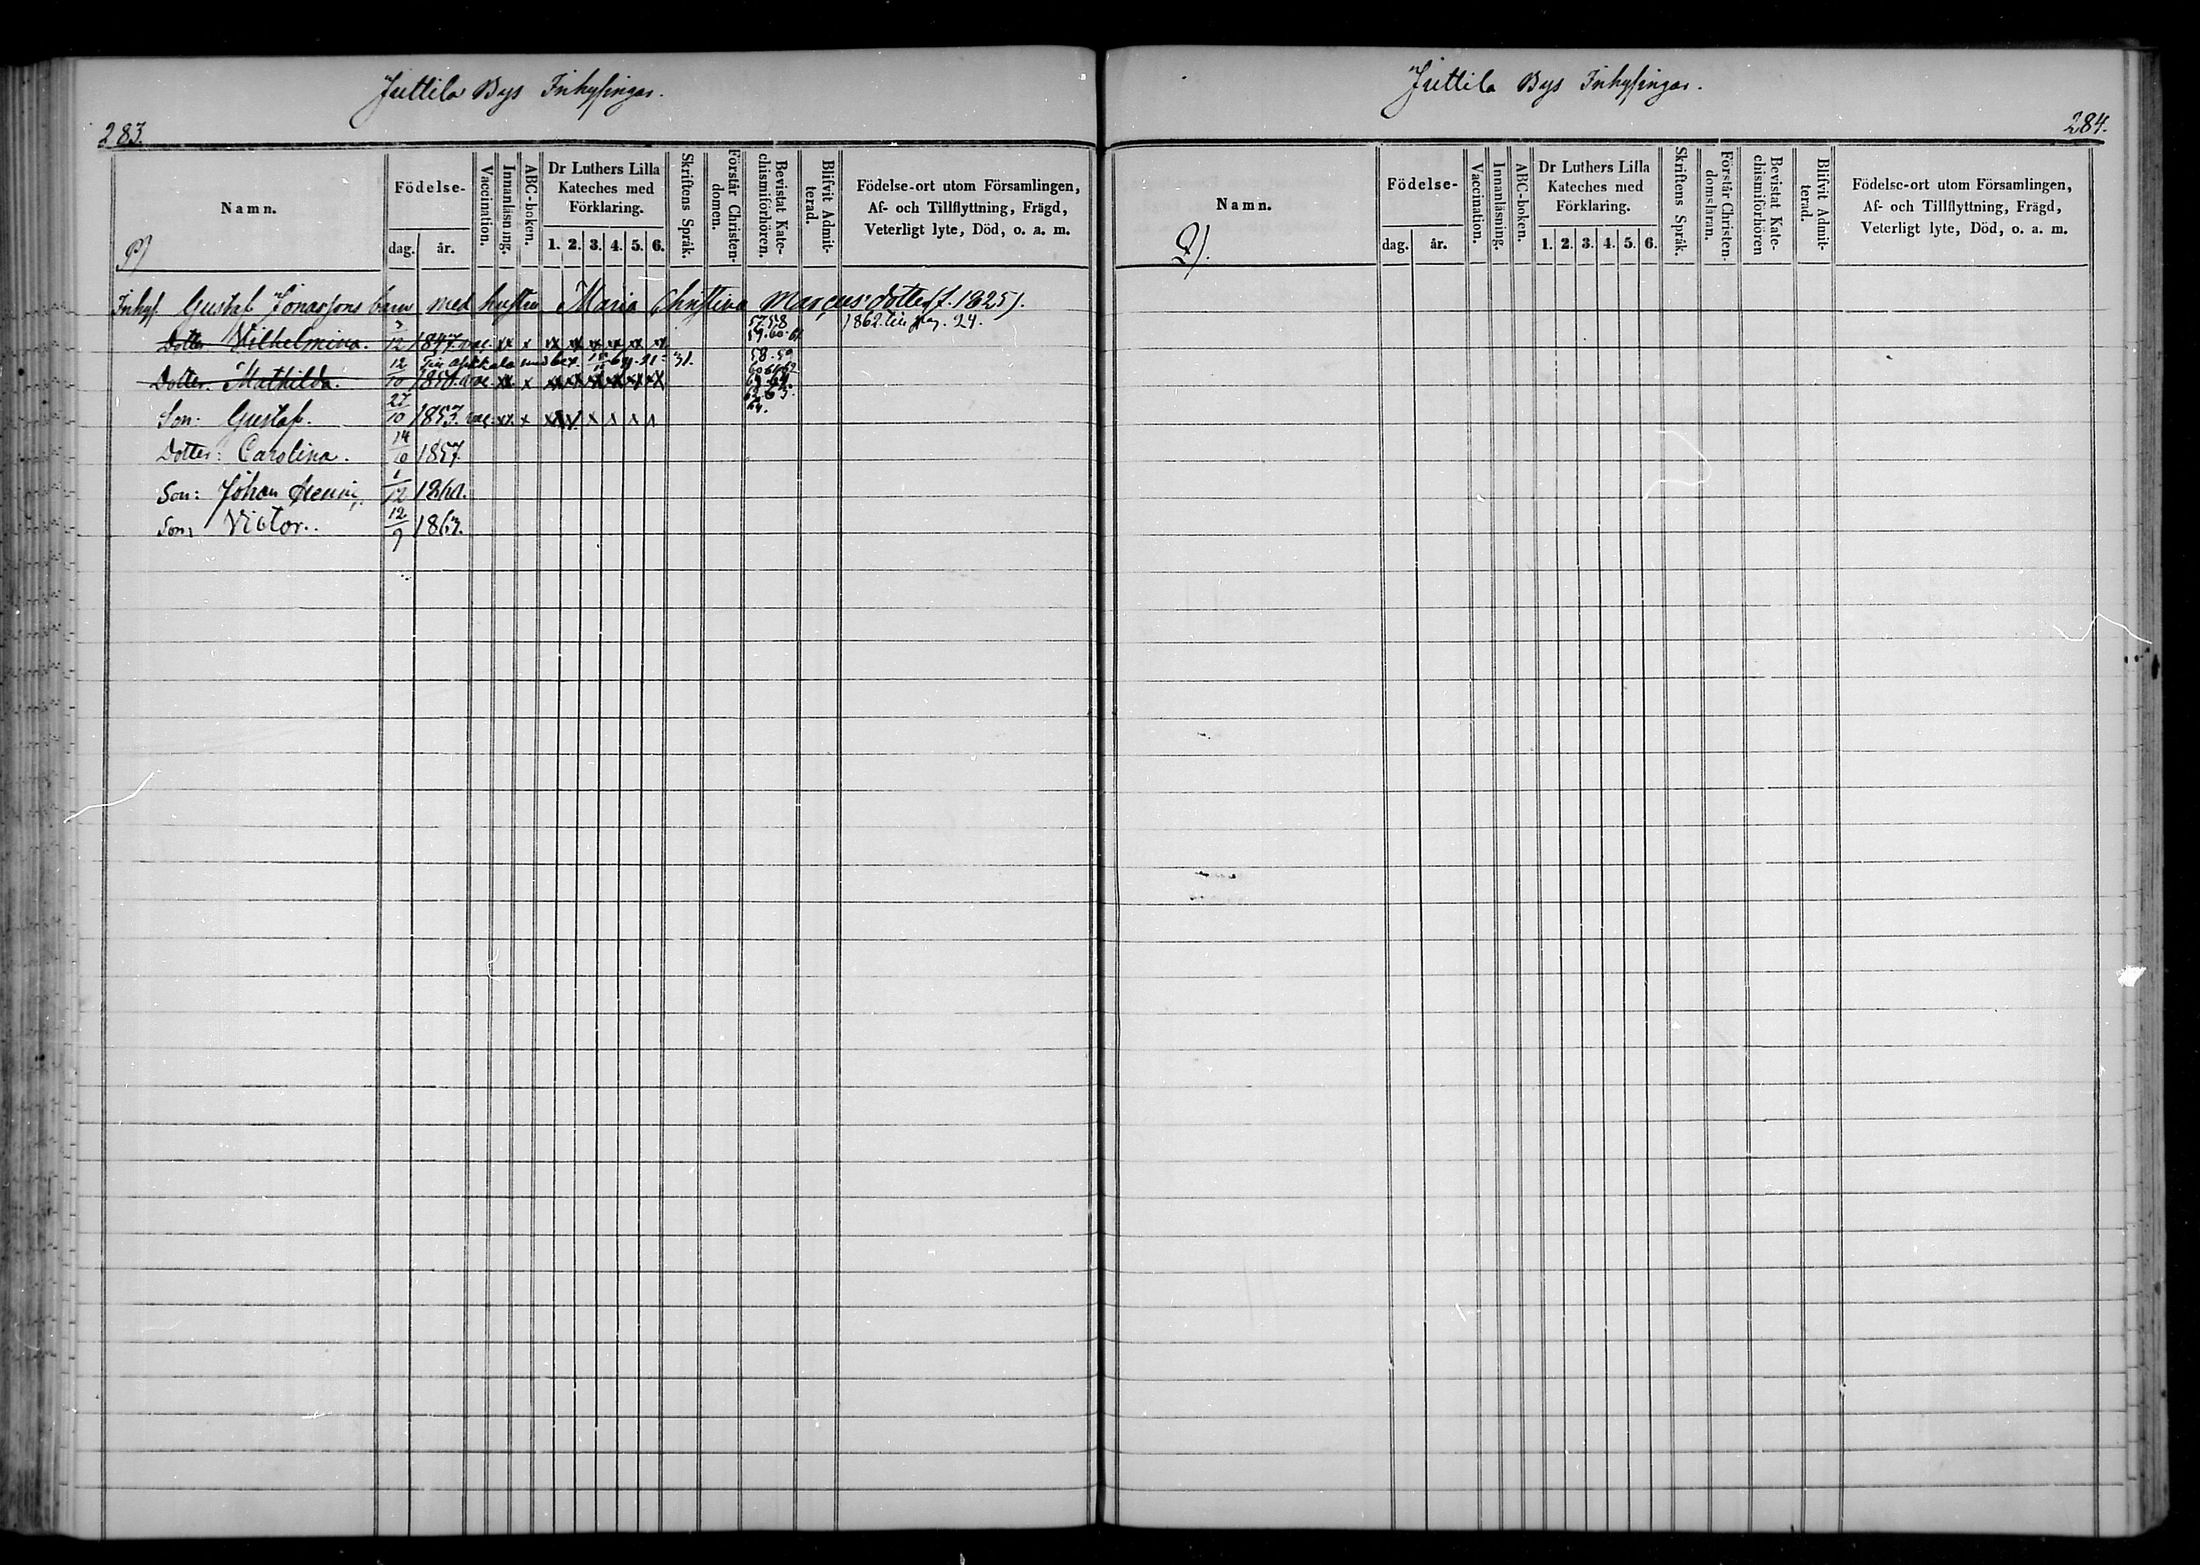 Juttila Bys Inhysingar.
283.
Namn.
P)
Födelse-
dag. år.
Vaccination.
Innanläsning.
ABC-boken.
Dr Luthers Lilla
Kateches med
Förklaring.
1. 2. 3. 4. 5. 6.
Skriftens Språk.
Förstår Christen-
domen.
Bevistat Kate-
chismiförhören.
Blifvit Admit-
terad.
Födelse-ort utom Församlingen,
Af- och Tillflyttning, Frägd,
Veterligt lyte, Död, o. a. m.
Inhys. Gustaf Jonassons barn med hustru Maria Christina Marcusdotter (f. 1825).
57.58
Dotter Wilhelmina. 3/12 1847. vac. xx x xx xx xx xx xx xx 59.60.61 1862. till pag. 24.
58.59
Dotter: Mathilda. 12/10 1850. vac. xx x xx xx xx xx xx xx
62.63.
64.
Son: Gustaf. 27/10 1853. vac. xx x
Dotter: Carolina. 14/6 1857.
Son: Johan Henric. 1/12 1860.
Son: Victor. 12/9 1863.
Juttila Bys Inhysingar.
284.
Namn.
Q).
Födelse-
dag. år.
Vaccination.
Innanläsning.
ABC-boken.
Dr Luthers Lilla
Kateches med
Förklaring.
1. 2. 3. 4. 5. 6.
Skriftens Språk.
Förstår Christen-
domsläran.
Bevistat Kate-
chismiförhören
Blifvit Admit-
terad.
Födelse-ort utom Församlingen,
Af- och Tillflyttning, Frägd,
Veterligt lyte, Död, o. a. m.